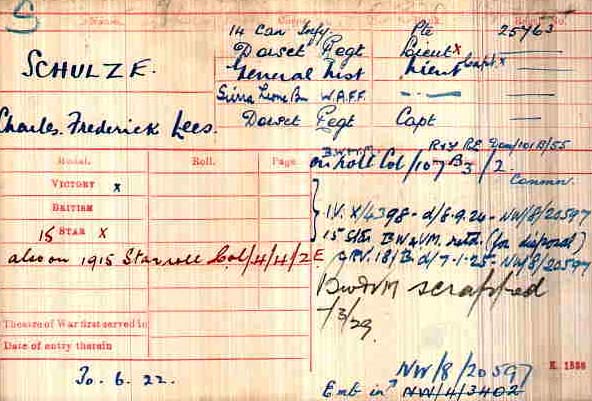 S
Name. Corps. Rank. Regtl. No.
14 Can Infy. Pte 25763
SCHULZE. Dorset Regt Lieut x
General List Lieut Capt. x
Sierra Leone Bn W.A.F.F.
Charles Frederick Lees. Dorset Regt Capt
Medal. Roll. Page
B.W.M. R & F RE Dan/101B/55
on roll Col/107 B 3/2
Canmn.
VICTORY x
BRITISH
15 STAR X
IV. X/4398 - d/8.9.24 - NW/8/20597
15 Star BW&VM. retd. (for disposal)
also on 1915 Star roll Col/4/4/2E
18/B d/7-1-25- NW/8/20597
BW&VM scrapped
7/3/29.
Theatre of War first served in
Date of entry therein
K. 1380
30. 6. 22.
NW/8/20597
Emb in NW/4/3402